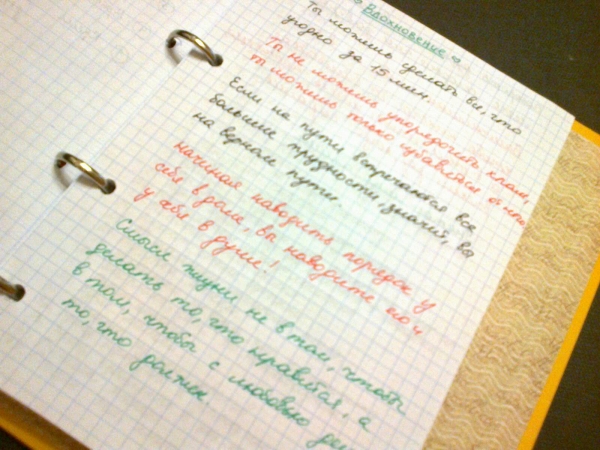 Вдохновение
Ты можешь сделать всё, что
угодно за 15 мин.
Ты не можешь упорядочить хлам,
ты можешь только избавиться от него
Если на пути встречаются все
большие трудности, значит, вы
на верном пути.
начиная наводить порядок у
себя в доме, вы наводите его и
у себя в душе!
Смысл жизни не в том, чтобы
делать то, что нравится, а
в том, чтобы с любовью де
то, что должен.